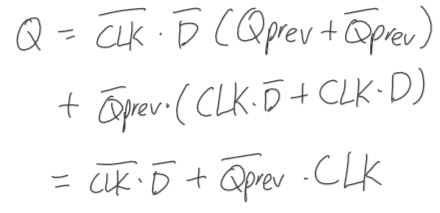 Q = C̅L̅K̅ · D̅ (Qprev + Q̅prev)
+ Q̅prev · (CLK · D̅ + CLK · D)
= C̅L̅K̅ · D̅ + Q̅prev · CLK